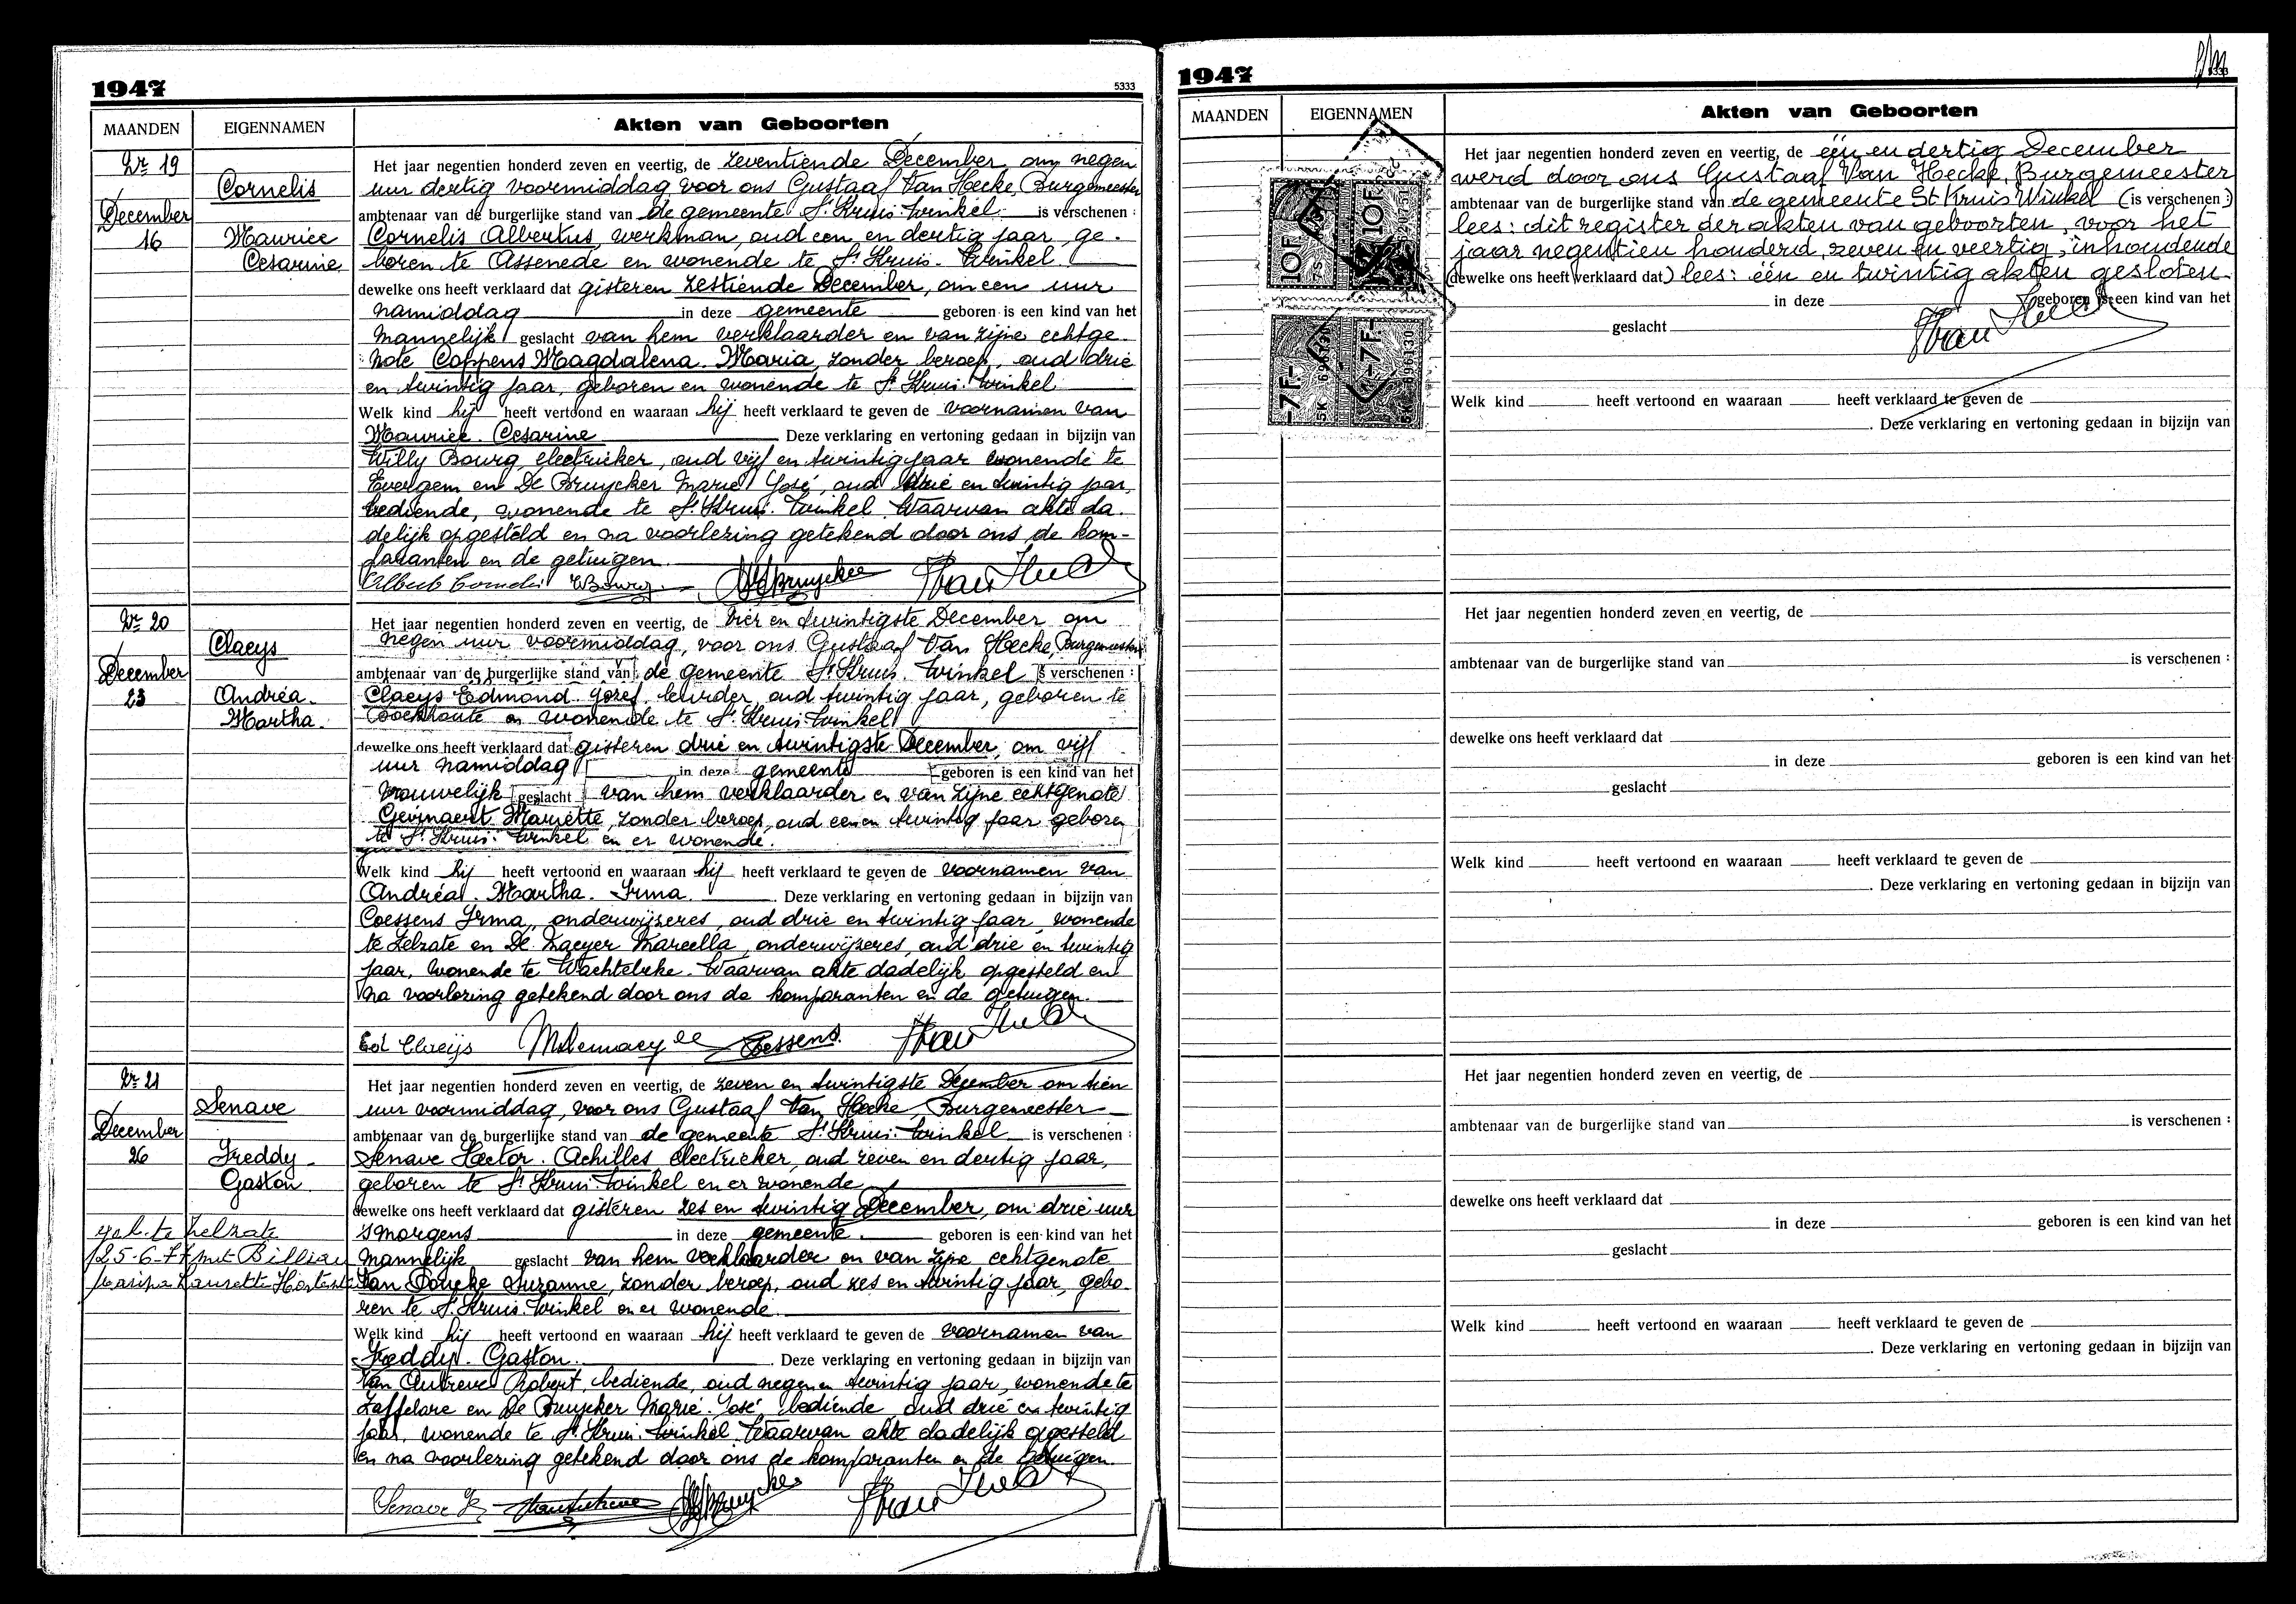 1947
5333
MAANDEN EIGENNAMEN Akten van Geboorten
Nr 19
Cornelis
December
16 Maurice
Cesarine
Het jaar negentien honderd zeven en veertig, de zeventiende December, om negen
uur dertig voormiddag voor ons Gustaaf Van Hecke, Burgemeester
ambtenaar van de burgerlijke stand van de gemeente St Kruis-Winkel is verschenen :
Cornelis Albertus, werkman, oud een en dertig jaar, ge-
boren te Assenede en wonende te St Kruis-Winkel
dewelke ons heeft verklaard dat gisteren zestiende December, om een uur
namiddag in deze gemeente geboren is een kind van het
mannelijk geslacht van hem verklaarder en van zijne echtge-
note Coppens Magdalena-Maria, zonder beroep, oud drie
en twintig jaar, geboren en wonende te St Kruis-Winkel
Welk kind hij heeft vertoond en waaraan hij heeft verklaard te geven de voornamen van
Maurice-Cesarine Deze verklaring en vertoning gedaan in bijzijn van
Willy Bourg, electrieker, oud vijf en twintig jaar wonende te
Evergem en De Bruycker Marie José, oud drie en twintig jaar,
bediende, wonende te St Kruis-Winkel. Waarvan akte da-
delijk opgesteld en na voorlezing getekend door ons de kom-
paranten en de getuigen.
Albert Cornelis WBourg
Nr 20
Claeys
December
23 Andréa-
Martha
Het jaar negentien honderd zeven en veertig, de vier en twintigste December om
negen uur voormiddag, voor ons Gustaaf Van Hecke, Burgemeester
ambtenaar van de burgerlijke stand van de gemeente St Kruis-Winkel is verschenen :
Claeys Edmond-Jozef, oud twintig jaar, geboren te
Boekhoute en wonende te St Kruis-Winkel
dewelke ons heeft verklaard dat gisteren drie en twintigste December, om vijf
uur namiddag in deze gemeente geboren is een kind van het
vrouwelijk geslacht van hem verklaarder en van zijne echtgenote
Gevinaert Mariette, zonder beroep, oud een en twintig jaar geboren
te St Kruis-Winkel en er wonende.
Welk kind hij heeft vertoond en waaraan hij heeft verklaard te geven de voornamen van
Andréa-Martha-Irma. Deze verklaring en vertoning gedaan in bijzijn van
Coessens Irma, onderwijzeres, oud drie en twintig jaar, wonende
te Zelzate en De Maeyer Marcella, onderwijzeres, oud drie en twintig
jaar, wonende te Wachtebeke. Waarvan akte dadelijk opgesteld en
na voorlezing getekend door ons de komparanten en de getuigen.
Ed Claeijs
Nr 21
Senave
December
26 Freddy-
Gaston
geh. te Zelzate
25-6-77 met Billiau
Laurette
Het jaar negentien honderd zeven en veertig, de zeven en twintigste December om tien
uur voormiddag, voor ons Gustaaf Van Hecke, Burgemeester
ambtenaar van de burgerlijke stand van de gemeente St Kruis-Winkel is verschenen :
Senave Hector-Achilles electrieker, oud zeven en dertig jaar,
geboren te St Kruis-Winkel en er wonende
dewelke ons heeft verklaard dat gisteren zes en twintig December, om drie uur
s'morgens in deze gemeente geboren is een kind van het
mannelijk geslacht van hem verklaarder en van zijne echtgenote
Suzanne, zonder beroep, oud zes en twintig jaar, gebo-
ren te St Kruis-Winkel en er wonende.
Welk kind hij heeft vertoond en waaraan hij heeft verklaard te geven de voornamen van
Freddy-Gaston. Deze verklaring en vertoning gedaan in bijzijn van
Van Robert, bediende, oud negen en twintig jaar, wonende te
Zaffelare en De Bruycker Marie-José bediende oud drie en twintig
jaar, wonende te St Kruis-Winkel. Waarvan akte dadelijk opgesteld
en na voorlezing getekend door ons de komparanten en de getuigen.
Senave
1947
MAANDEN EIGENNAMEN Akten van Geboorten
10F 10F
7F 7F
696130
Het jaar negentien honderd zeven en veertig, de één en dertig December
werd door ons Gustaaf Van Hecke, Burgemeester
ambtenaar van de burgerlijke stand van de gemeente St Kruis Winkel (is verschenen :)
lees: dit register der akten van geboorten, voor het
jaar negentien honderd zeven en veertig, inhoudende
(dewelke ons heeft verklaard dat) lees: één en twintig akten gesloten.
in deze geboren is een kind van het
geslacht
Welk kind heeft vertoond en waaraan heeft verklaard te geven de
. Deze verklaring en vertoning gedaan in bijzijn van
Het jaar negentien honderd zeven en veertig, de
ambtenaar van de burgerlijke stand van is verschenen :
dewelke ons heeft verklaard dat
in deze geboren is een kind van het
geslacht
Welk kind heeft vertoond en waaraan heeft verklaard te geven de
. Deze verklaring en vertoning gedaan in bijzijn van
Het jaar negentien honderd zeven en veertig, de
ambtenaar van de burgerlijke stand van is verschenen :
dewelke ons heeft verklaard dat
in deze geboren is een kind van het
geslacht
Welk kind heeft vertoond en waaraan heeft verklaard te geven de
. Deze verklaring en vertoning gedaan in bijzijn van